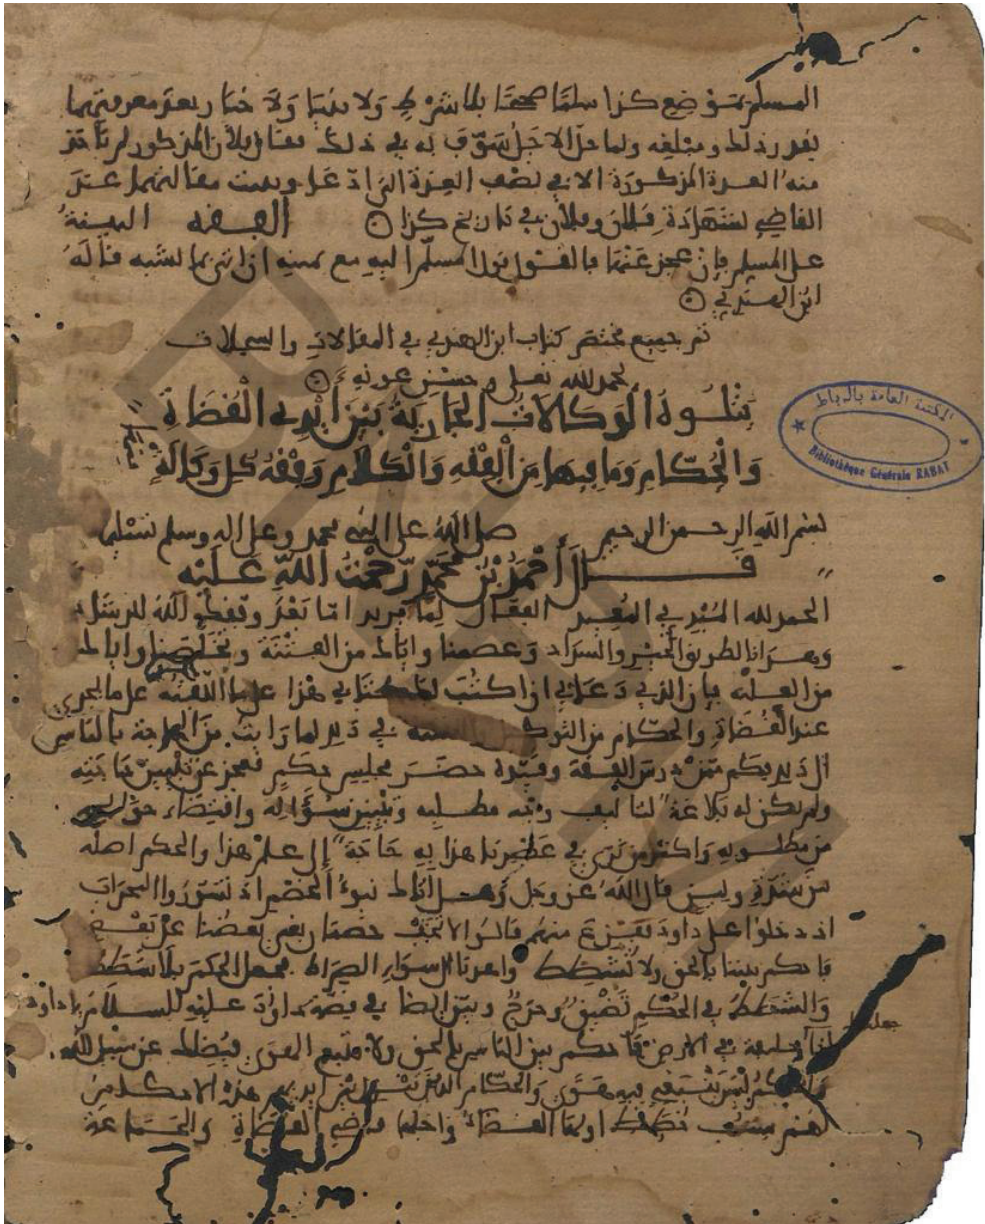 المسلم بموضع كذا سلما صحيحا بلا شرط ولا ثنيا ولا خيار بعد معرفتهما
بقدر ذلك ومبلغه ولما حل الاجل سوف به في ذلك فقال فلان المذكور لم تاخذ
منه العدة المذكورة الا في نصف العدة التي ادعى وثبتت مقالتهما عند
القاضي بشهادة فلان وفلان في تاريخ كذا الفقه البينة
على المسلم فإن عجز عنها فالقول قول المسلم اليه مع يمينه اذا اتى بما يشبه قاله
ابن الهندي
تم جميع مختصر كتاب ابن الهندي في المقالات والسجلات
بحمد الله تعلى وحسن عونه
يتلوه الوكالات الجارية بين أيدي القضاة
والحكام وما فيها من الفقه والكلام وفقه كل وكالة
المكتبة العامة بالرباط
Bibliothèque Générale RABAT
بسم الله الرحمن الرحيم صلى الله على محمد وعلى اله وسلم تسليما
قال أحمد بن محمد رحمت الله عليه
الحمد لله المبدي المعيد الفعال لما يريد اما بعد وفقك الله للرشاد
وهدانا لطريق الخير والسداد وعصمنا واياك من الفتنة واياك
من فإن الذي دعاني اذ اكتب في هذا على ما يجري
عند القضاة والحكام من التوكيل في لما رايت من الحاجة بالناس
اليه فكم ممن درس الفقه وقيده حضر مجلس حكم فعجز عن تلخيص حاجته
ولم يكن له بلاغة وجه مطلبه وتبيين سؤاله واقتضاء حق
من مطلوبه واكثر من في عصرنا هذا به حاجة إلى علم هذا والحكم اصله
قال الله عز وجل وهل أتاك نبؤا الخصم اذ تسوروا المحراب
اذ دخلوا على داود ففزع منهم قالوا لا تخف خصمان بغى بعضنا على بعض
فاحكم بيننا بالحق ولا تشطط واهدنا الى سواء الصراط فجعل الحكم بلا شطط
والشطط في الحكم تضييق وحرج وبين ايضا في قصة داوود عليه السلام يا داود
جعلناك
إنا خليفة في الارض فاحكم بين الناس بالحق ولا تتبع الهوى فيضلك عن سبيل الله
والحكم ليس ينبغي فيه هوى والحكام الذين تجري على ايديهم هذه الاحكام
خطط اولها القضاء واجلها قاضي القضاة والجماعة